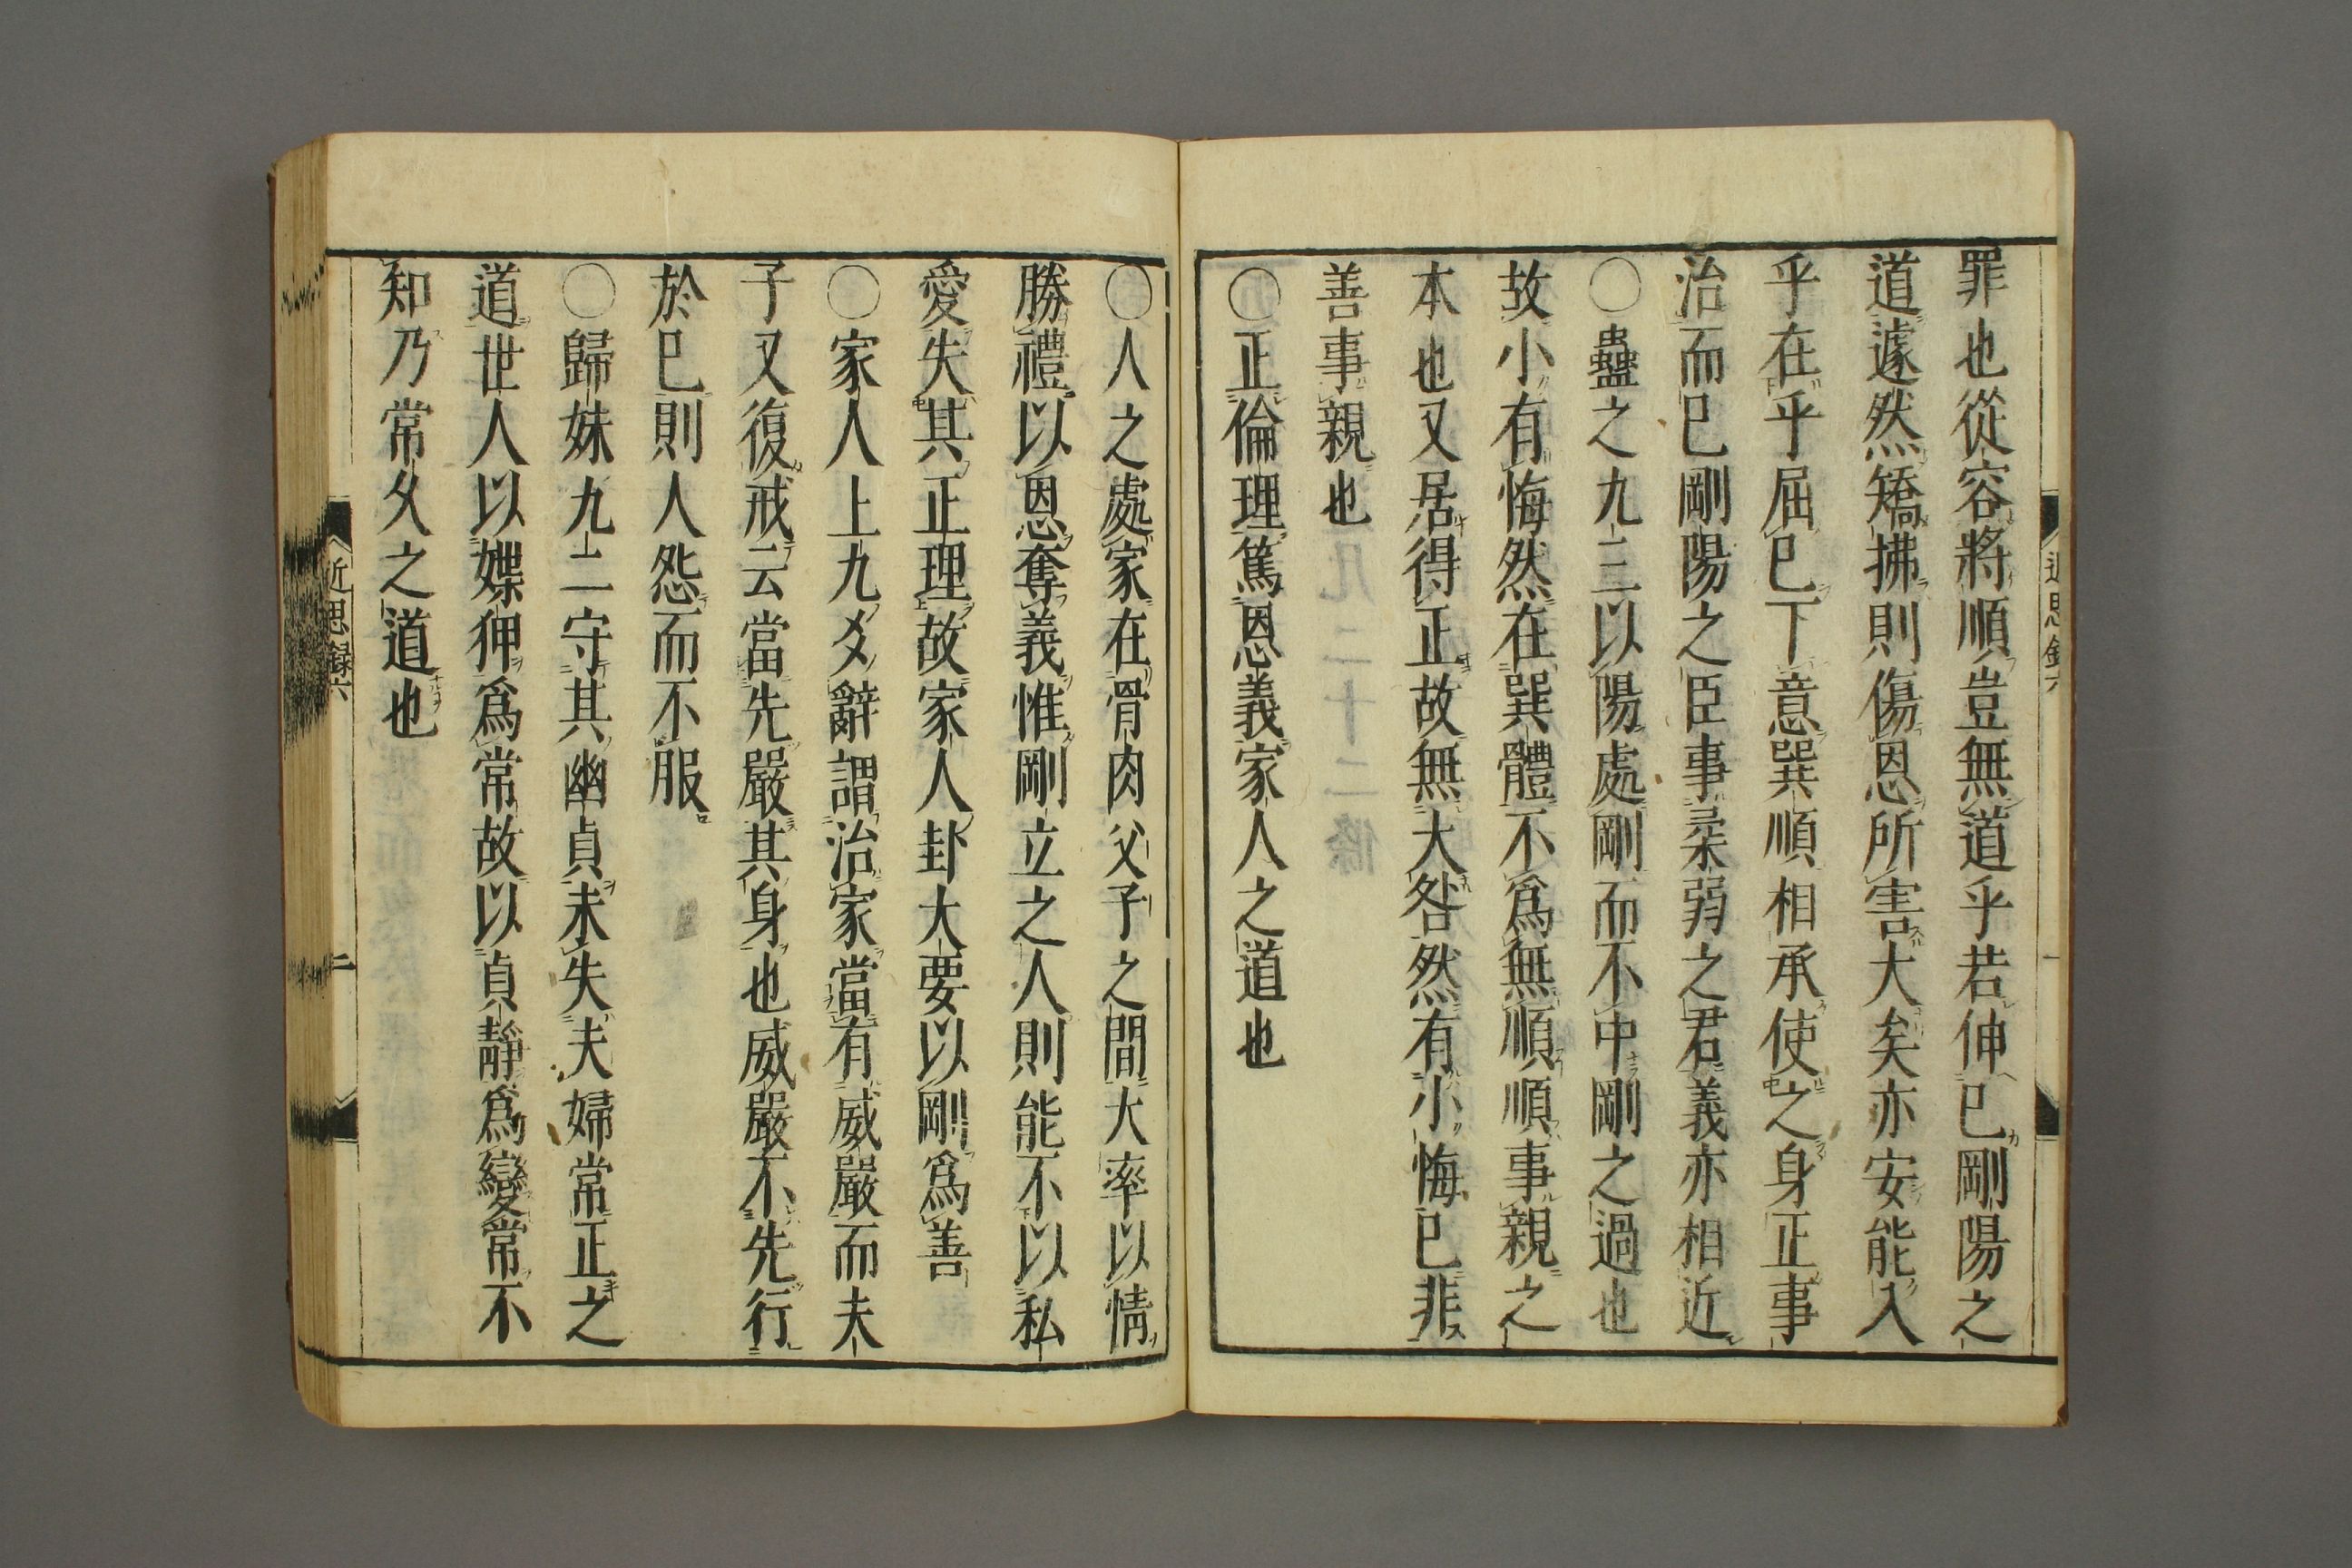 罪也從容將順豈無道乎若伸己剛陽之
道遽然矯拂則傷恩所害大矣亦安能入
乎在乎屈已下意巽順相承使之身正事
治而已剛陽之臣事柔弱之君義亦相近
〇蠱之九三以陽處剛而不中剛之過也
故小有悔然在巽體不爲無順順事親之
本也又居得正故無大咎然有小悔已非
善事親也
〇正倫理篤恩義家人之道也
〇人之處家在骨肉父子之間大率以情
勝禮以恩奪義惟剛立之人則能不以私
愛失其正理故家人卦大要以剛爲善
〇家人上九爻辭謂治家當有威嚴而夫
子又復戒云當先嚴其身也威嚴不先行
於已則人怨而不服
〇歸妹九二守其幽貞未失夫婦常正之
道世人以媟狎爲常故以貞靜爲變常不
知乃常久之道也
近思録六
二